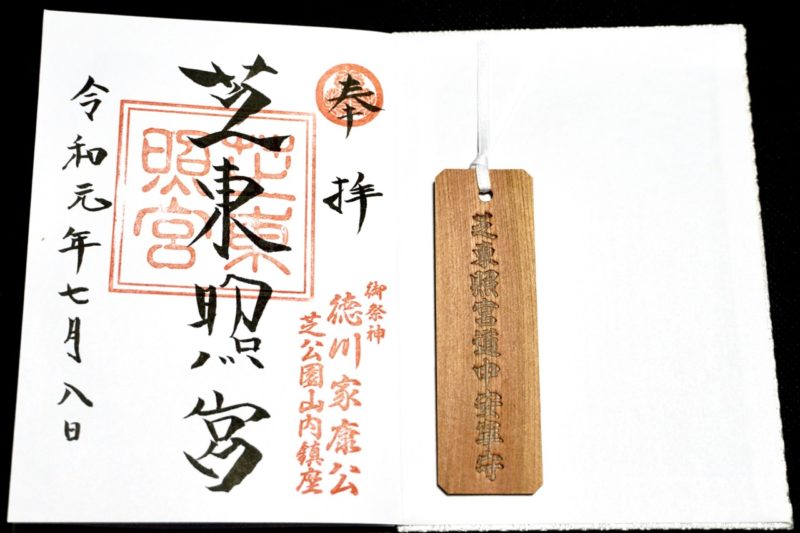 奉拝
御祭神
徳川家康公
芝公園山内鎮座
芝東照宮
芝東照宮
令和元年七月八日
芝東照宮道中安全守